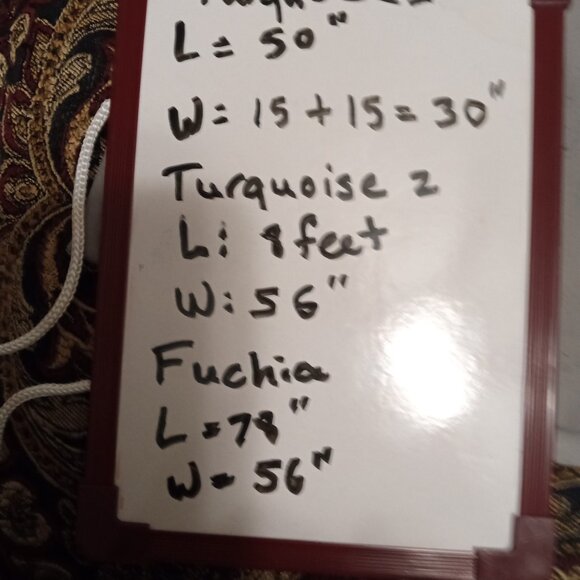 L = 50"
W = 15 + 15 = 30"
Turquoise 2
L: 8 feet
W: 56"
Fuchia
L = 78"
W = 56"